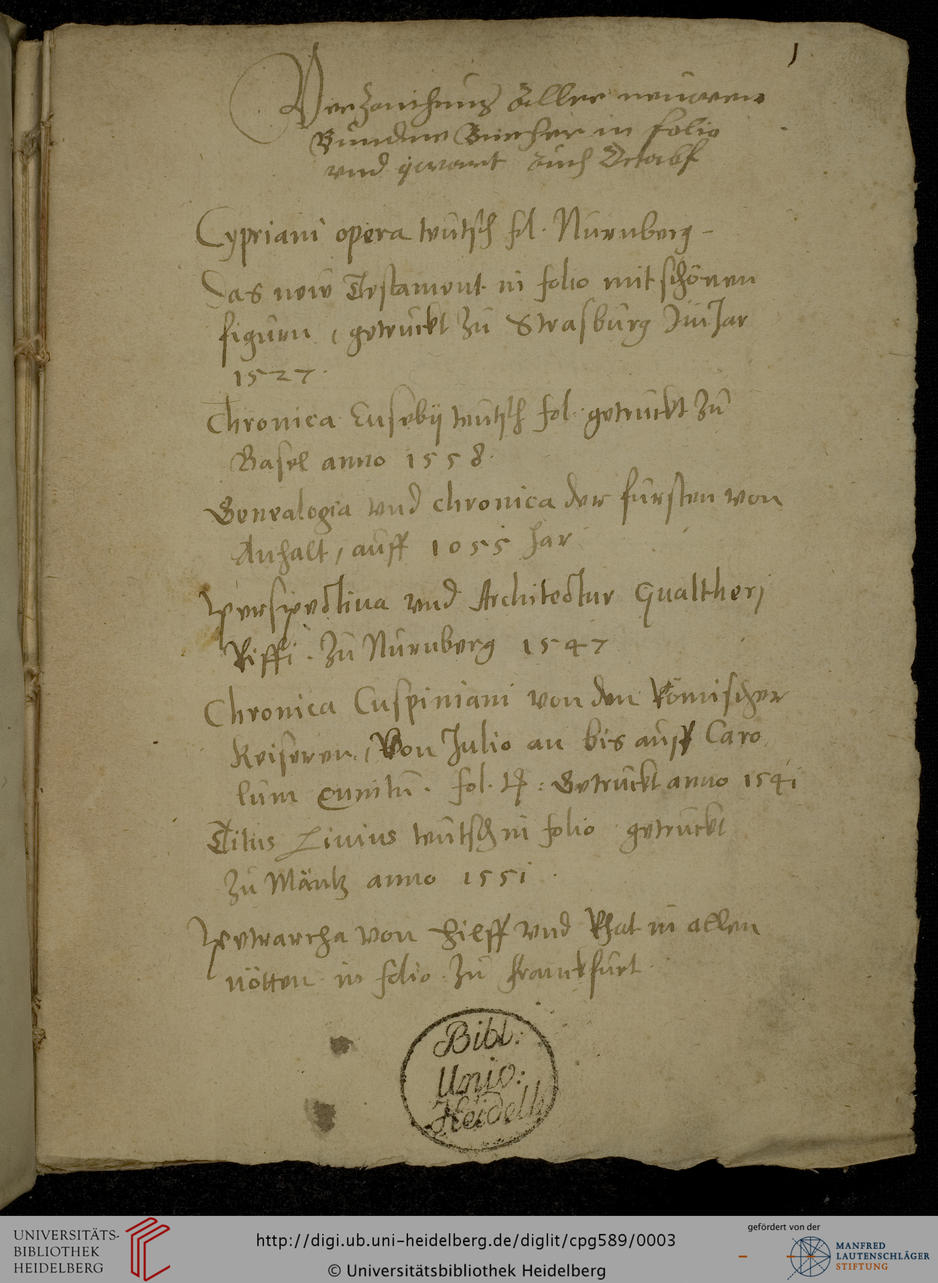 1
Verzaichnus Aller neuwen
Bundne Buecher in folio
vnd quart Auch Octabf
Cypriani opera teutsch fol. Nürnberg -
Das new Testament in folio mit schönen
figuren, getruckt zu Strasburg Im Jar
1527.
Chronica Eusebij teutsch fol. getruckt zu
Basel anno 1558.
Genealogia vnd chronica der fürsten von
Anhalt, auff 1055 Jar
Perspectiua vnd Architectur Gualtherj
Riffi. zu Nürnberg 1547
Chronica Cuspiniani von den Römischer
Keiseren, Von Julio an bis auff Caro
lum quintu. fol. : Getruckt anno 1541
Titus Liuius teutsch in folio getruckt
zu Mäntz anno 1551.
Petrarcha von hilff vnd Rhat in allen
nötten in folio zu franckfurt.
Bibl:
Univ:
Heidelb
UNIVERSITÄTS-
BIBLIOTHEK
HEIDELBERG
http://digi.ub.uni-heidelberg.de/diglit/cpg589/0003
© Universitätsbibliothek Heidelberg
gefördert von der
MANFRED
LAUTENSCHLÄGER
STIFTUNG